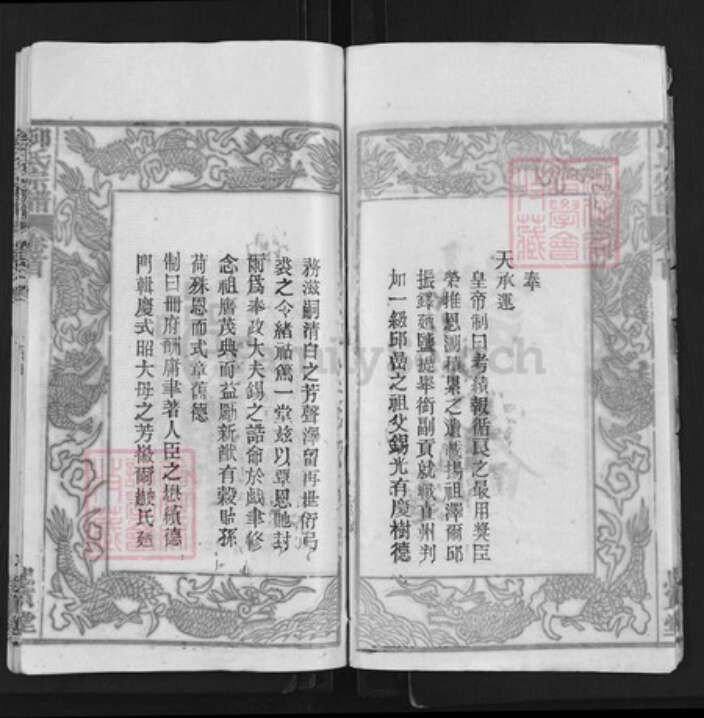 奉
天承運
皇帝制曰考績報循良之最用獎臣
榮推恩溯積累之遺載揚祖澤爾邱
振鐸鹽提舉銜副貢就職直州判
加一級邱嵒之祖父錫光有慶樹德
務滋嗣清白之芳聲澤留再世衍弓
裘之令緒祜篤一堂茲以覃恩貤封
爾為奉政大夫錫之誥命於戲聿修
念祖膺茂典而益勵新猷有穀貽孫
荷殊恩而式章舊德
制曰冊府酬庸聿著人臣之懋績德
門輯慶式昭大母之芳徽爾氏
邱氏宗譜 卷首
堂